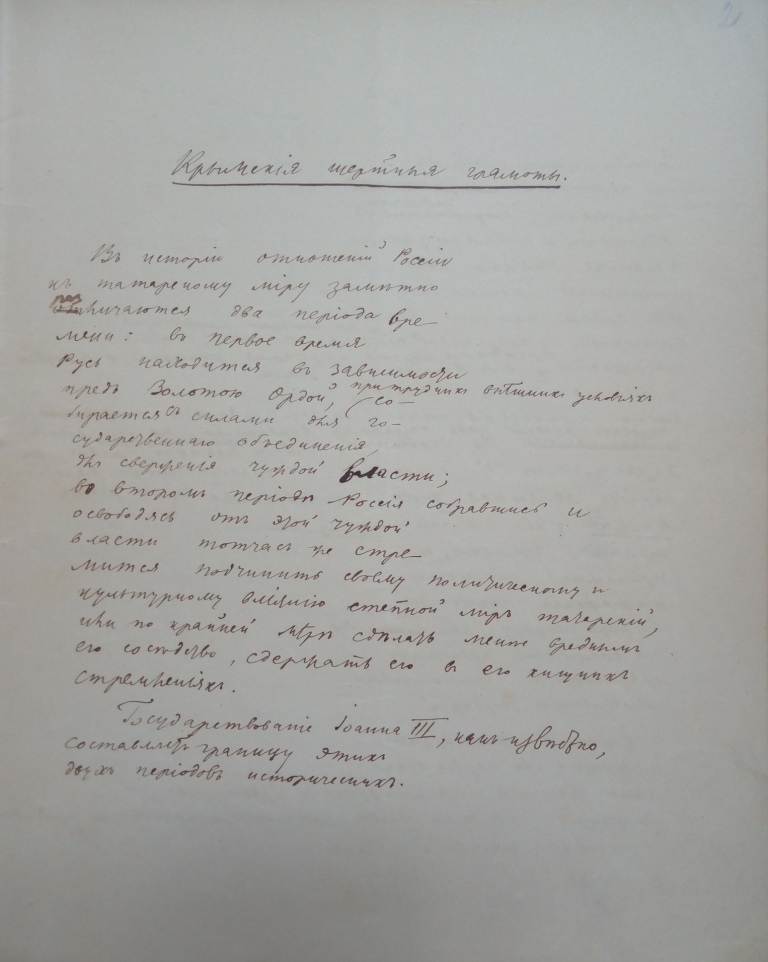 2
Крымскія шертныя грамоты.
Въ исторіи отношеній Россіи
къ татарскому міру замѣтно
различаются два періода вре-
мени: въ первое время
Русь находится въ зависимости
предъ Золотою Ордой, при трудныхъ внѣшнихъ условіяхъ со-
бирается съ силами для го-
сударственнаго объединенія,
для сверженія чуждой власти;
во второмъ періодѣ Россія собравшись и
освободясь отъ этой чуждой
власти тотчасъ же стре-
мится подчинить своему политическому и
культурному вліянію степной міръ татарскій,
или по крайней мѣрѣ сдѣлать менѣе вреднымъ
его сосѣдство, сдержать его въ его хищныхъ
стремленіяхъ.
Государствованіе Іоанна III, какъ извѣстно,
составляетъ границу этихъ
двухъ періодовъ историческихъ.